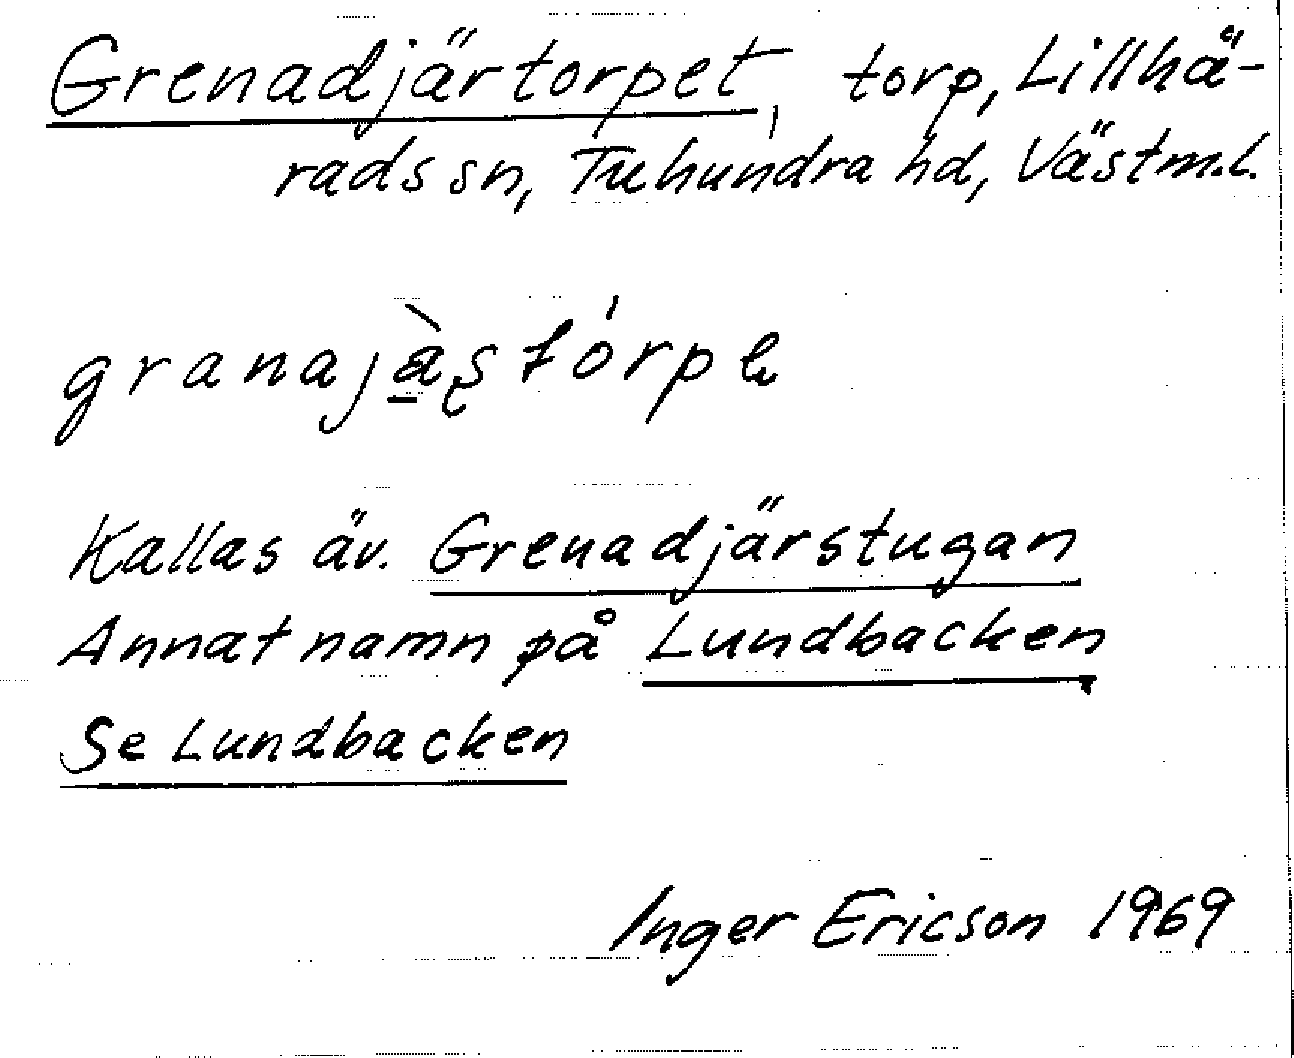 Grenadjärtorpet, torp, Lillhä-
rads sn, Tuhundra hd, Västm.l.
Kallas äv. Grenadjärstugan
Annat namn på Lundbacken
Se Lundbacken
Inger Ericson 1969